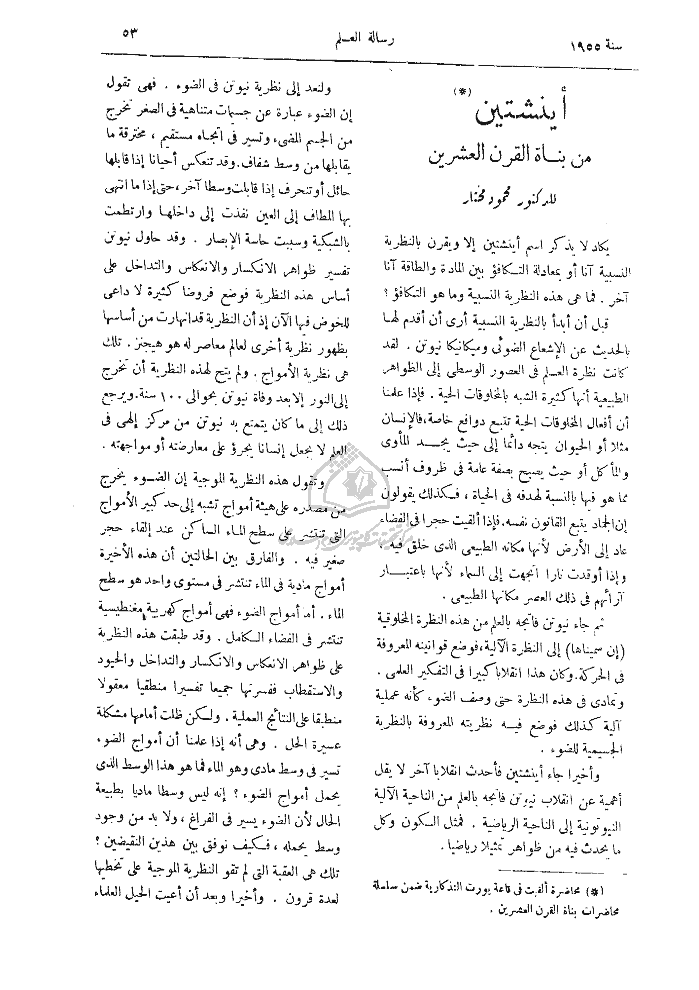 سنة ١٩٥٥
رسالة العلم
٥٣
أينشتين (*)
من بناة القرن العشرين
للدكتور محمود مختار
يكاد لا يذكر اسم أينشتين إلا ويقرن بالنظرية
النسبية آنا أو بمعادلة التكافؤ بين المادة والطاقة آنا
آخر . فما هى هذه النظرية النسبية وما هو التكافؤ ؟
قبل أن أبدأ بالنظرية النسبية أرى أن أقدم لها
بالحديث عن الإشعاع الضوئى وميكانيكا نيوتن . لقد
كانت نظرة العلم فى العصور الوسطى إلى الظواهر
الطبيعية أنها كثيرة الشبه بالمخلوقات الحية . فإذا علمنا
أن أفعال المخلوقات الحية تتبع دوافع خاصة، فالإنسان
مثلا أو الحيوان يتجه دائما إلى حيث يجد المأوى
والمأكل أو حيث يصبح بصفة عامة فى ظروف أنسب
مما هو فيها بالنسبة لهدفه فى الحياة ، فكذلك يقولون
إن الجماد يتبع القانون نفسه. فإذا ألقيت حجرا فى الفضاء
عاد إلى الأرض لأنها مكانه الطبيعى الذى خلق فيه ،
وإذا أوقدت نارا اتجهت إلى السماء لأنها باعتبار
آرائهم فى ذلك العصر مكانها الطبيعى .
ثم جاء نيوتن فاتجه بالعلم من هذه النظرة المخلوقية
(إن سميناها) إلى النظرة الآلية، فوضع قوانينه المعروفة
فى الحركة. وكان هذا انقلابا كبيرا فى التفكير العلمى .
وتمادى فى هذه النظرة حتى وصف الضوء كأنه عملية
آلية كذلك فوضع فيه نظريته المعروفة بالنظرية
الجسيمية للضوء .
وأخيرا جاء أينشتين فأحدث انقلابا آخر لا يقل
أهمية عن انقلاب نيوتن فاتجه بالعلم من الناحية الآلية
النيوتونية إلى الناحية الرياضية . فمثل السكون وكل
ما يحدث فيه من ظواهر تمثيلا رياضيا .
(*) محاضرة ألقيت فى قاعة يورت التذكارية ضمن سلسلة
محاضرات بناة القرن العشرين .
ولنعد إلى نظرية نيوتن فى الضوء . فهى تقول
إن الضوء عبارة عن جسيمات متناهية فى الصغر تخرج
من الجسم المضىء وتسير فى اتجاه مستقيم ، مخترقة ما
يقابلها من وسط شفاف. وقد تنعكس أحيانا إذا قابلها
حائل أو تنحرف إذا قابلت وسطا آخر، حتى إذا ما انتهى
بها المطاف إلى العين نفذت إلى داخلها وارتطمت
بالشبكية وسببت حاسة الإبصار . وقد حاول نيوتن
تفسير ظواهر الانكسار والانعكاس والتداخل على
أساس هذه النظرية فوضع فروضا كثيرة لا داعى
للخوض فيها الآن إذ أن النظرية قد انهارت من أساسها
بظهور نظرية أخرى لعالم معاصر له هو هيجنز . تلك
هى نظرية الأمواج . ولم يتح لهذه النظرية أن تخرج
إلى النور إلا بعد وفاة نيوتن بحوالى ١٠٠ سنة. ويرجع
ذلك إلى ما كان يتمتع به نيوتن من مركز إلهى فى
العلم لا يجعل إنسانا يجرؤ على معارضته أو مواجهته .
وتقول هذه النظرية الموجية إن الضوء يخرج
من مصدره على هيئة أمواج تشبه إلى حد كبير الأمواج
التى تنتشر على سطح الماء الساكن عند إلقاء حجر
صغير فيه . والفارق بين الحالتين أن هذه الأخيرة
أمواج مادية فى الماء تنتشر فى مستوى واحد هو سطح
الماء . أما أمواج الضوء فهى أمواج كهربية مغنطيسية
تنتشر فى الفضاء الكامل . وقد طبقت هذه النظرية
على ظواهر الانعكاس والانكسار والتداخل والحيود
والاستقطاب ففسرتها جميعا تفسيرا منطقيا معقولا
منطبقا على النتائج العملية . ولكن ظلت أمامها مشكلة
عسيرة الحل . وهى أنه إذا علمنا أن أمواج الضوء
تسير فى وسط مادى وهو الماء فما هو هذا الوسط الذى
يحمل أمواج الضوء ؟ إنه ليس وسطا ماديا بطبيعة
الحال لأن الضوء يسير فى الفراغ ، ولا بد من وجود
وسط يحمله ، فكيف نوفق بين هذين النقيضين ؟
تلك هى العقبة التى لم تقو النظرية الموجية على تخطيها
لعدة قرون . وأخيرا وبعد أن أعيت الحيل العلماء